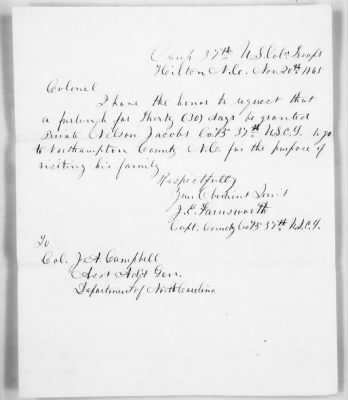 Camp 37th U.S. Col. Troops
Hilton N.C. Nov. 20th 1865
Colonel
I have the honor to request that
a furlough for Thirty (30) days be granted
Private Nelson Jacobs Co "B" 37th U.S.C.T. to go
to Northampton County N.C. for the purpose of
visiting his family
Respectfully
Your Obedient Servt
J. E. Farnsworth
Capt. Comdg Co "B" 37th U.S.C.T.
To
Col. J. A. Campbell
Asst Adjt Gen.
Department of North Carolina